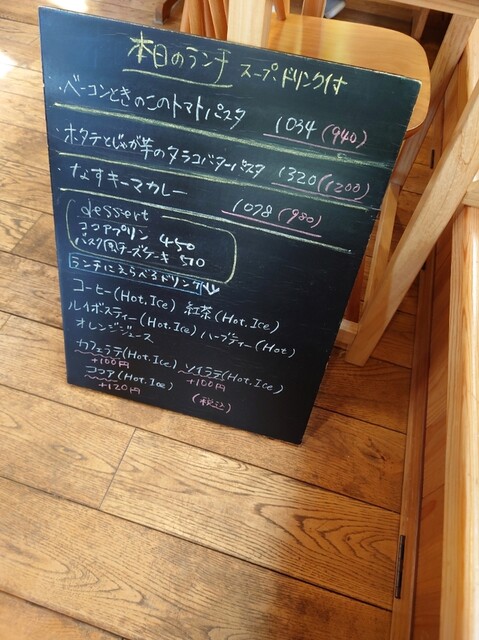 本日のランチ スープ、ドリンク付
・ベーコンときのこのトマトパスタ 1034(940)
・ホタテとじゃが芋のタラコバターパスタ 1320(1200)
・なすキーマカレー 1078(980)
dessert
ココアプリン 450
バスク風チーズケーキ 570
ランチにえらべるドリンク
コーヒー(Hot.Ice) 紅茶(Hot.Ice)
ルイボスティー(Hot.Ice) ハーブティー(Hot)
オレンジジュース
カフェラテ(Hot.Ice) ソイラテ(Hot.Ice)
+100円 +100円
ココア(Hot.Ice)
+120円 (税込)